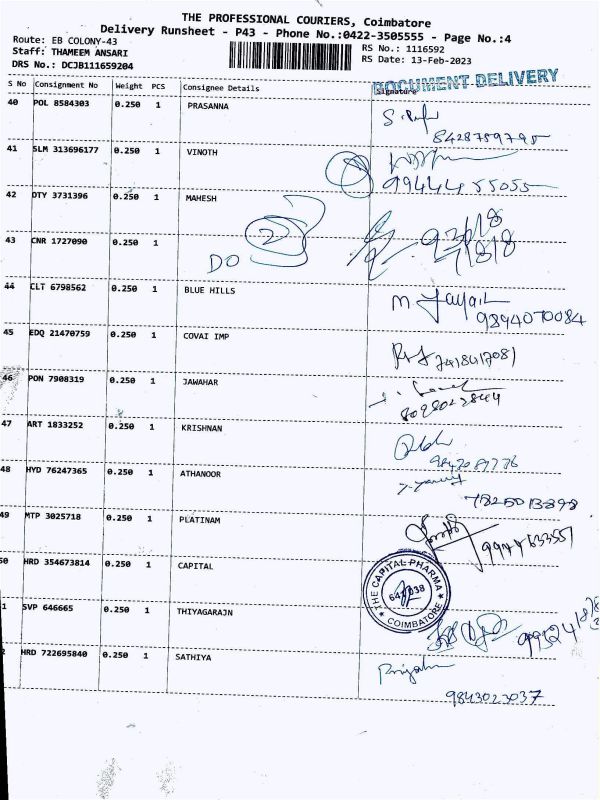 THE PROFESSIONAL COURIERS, Coimbatore
Delivery Runsheet - P43 - Phone No.:0422-3505555 - Page No.:4
Route: EB COLONY-43
RS No.: 1116592
Staff: THAMEEM ANSARI
RS Date: 13-Feb-2023
DRS No.: DCJB111659204
DOCUMENT DELIVERY
S No Consignment No Weight PCS Consignee Details Signature
40 POL 8584303 0.250 1 PRASANNA
8428759795
41 SLM 313696177 0.250 1 VINOTH
9944455055
42 DTY 3731396 0.250 1 MAHESH
43 CNR 1727090 0.250 1
DO 2
44 CLT 6798562 0.250 1 BLUE HILLS
9894070084
45 EDQ 21470759 0.250 1 COVAI IMP
7418417081
46 PON 7908319 0.250 1 JAWAHAR
47 ART 1833252 0.250 1 KRISHNAN
48 HYD 76247365 0.250 1 ATHANOOR
7825013898
49 MTP 3025718 0.250 1 PLATINAM
50 HRD 354673814 0.250 1 CAPITAL
THE CAPITAL PHARMA
COIMBATORE
1 SVP 646665 0.250 1 THIYAGARAJN
2 HRD 722695840 0.250 1 SATHIYA
9843023037